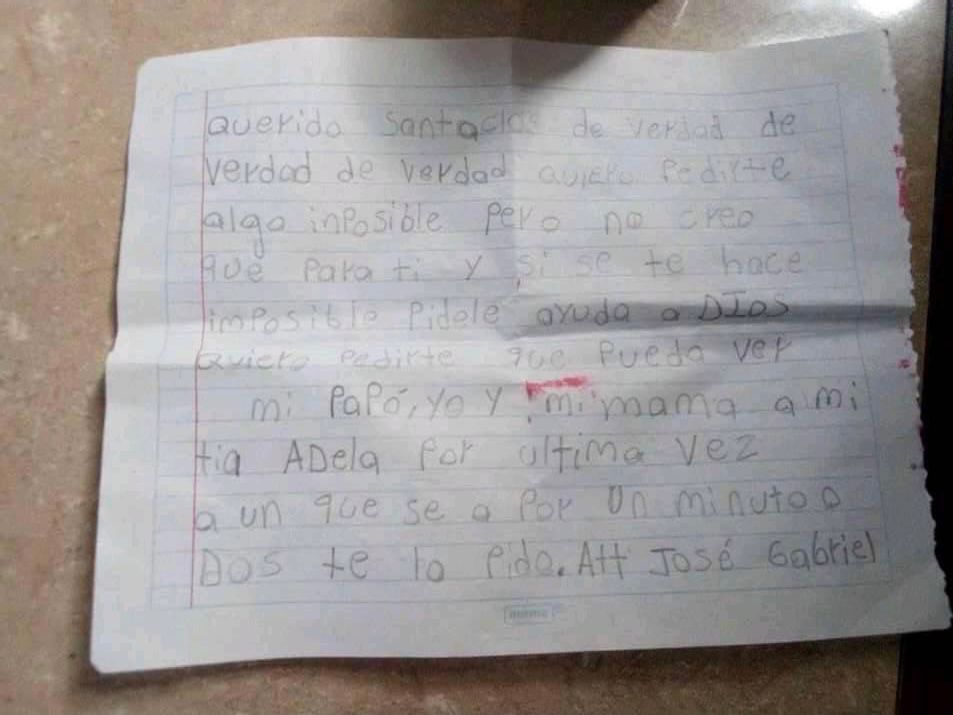 Querido Santaclos de verdad de
verdad de verdad quiero Pedirte
algo inPosible Pero no creo
que Para ti y si se te hace
imPosible Pidele ayuda a DIOS
quiero Pedirte que Pueda ver
mi PaPá, yo y mi mama a mi
tia ADela Por ultima vez
a un que se a Por un minuto o
Dos te lo Pido. Att José Gabriel
norma